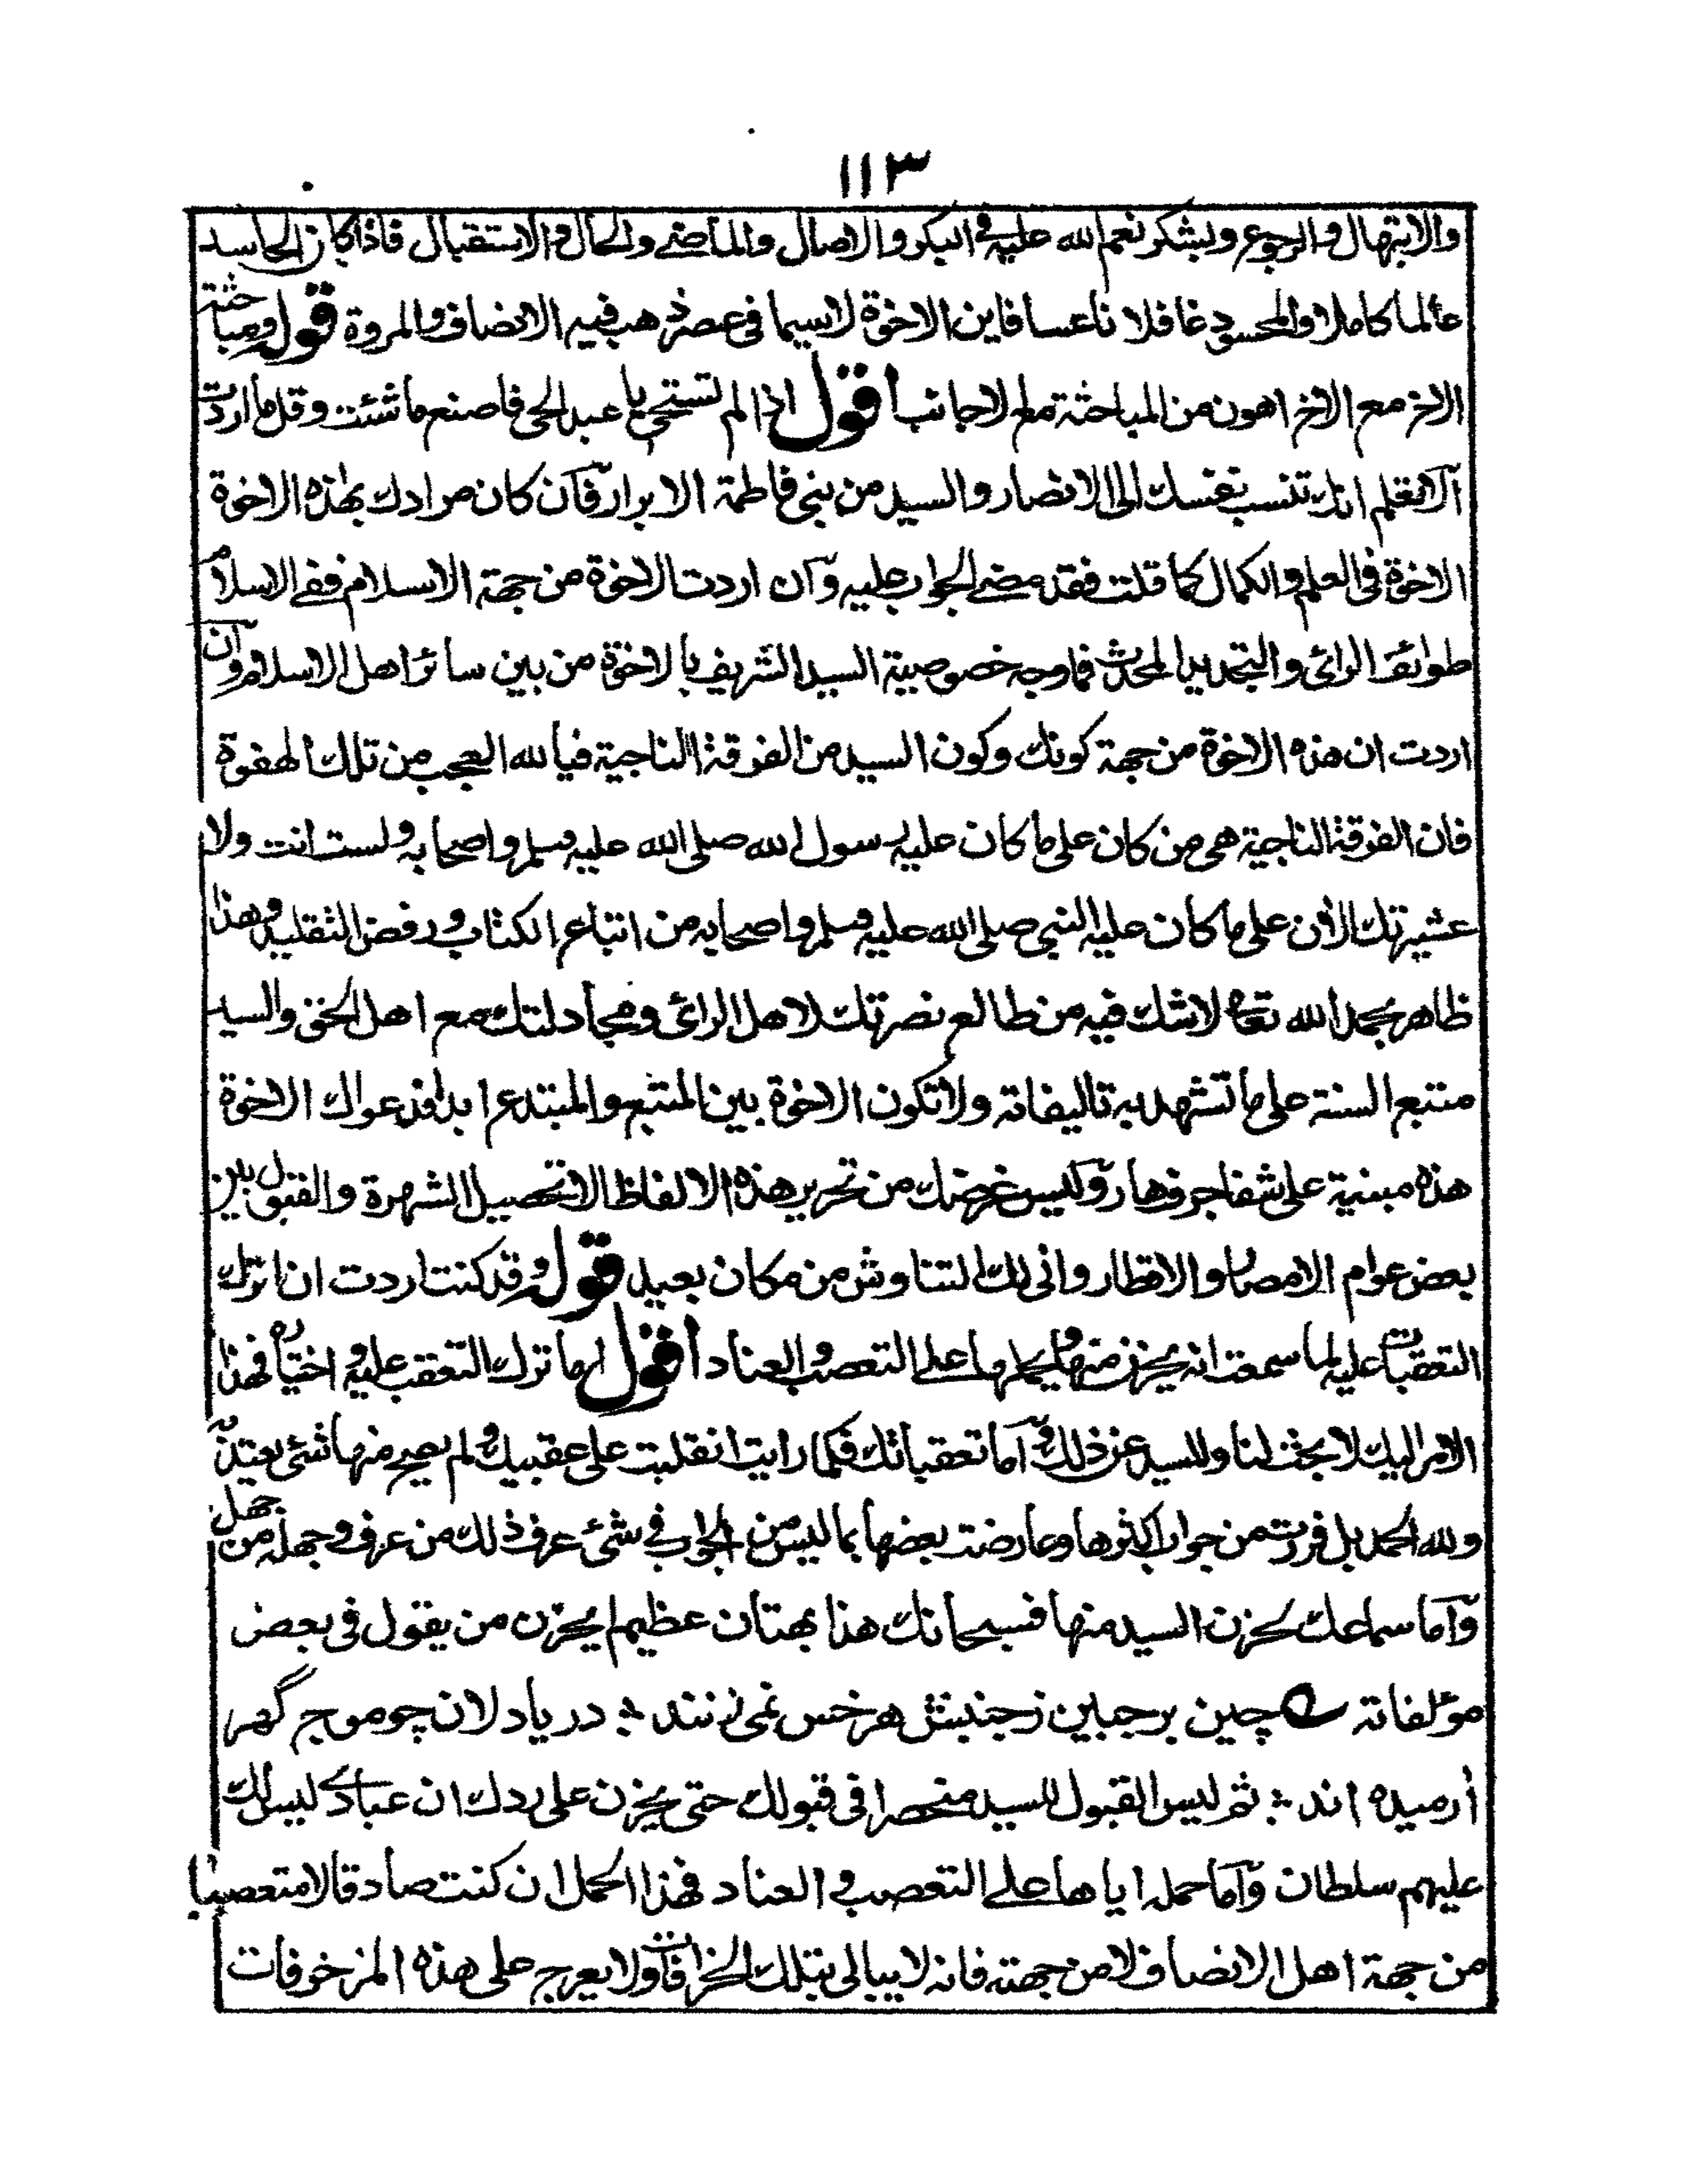 ١١٣
والابتهال والرجوع ويشكر نعم الله عليه في البكر والاصال والماضي والحال والاستقبال فاذا كان الحاسد
عالما كاملا والمحسود غافلا ناعسا فاين الاخوة لاسيما في عصر ذهب فيه الانصاف والمروة قوله ومباحثة
الاخ مع الاخ اهون من المباحثة مع الاجانب اقول اذا لم تستحي يا عبد الحى فاصنع ما شئت وقل ما اردت
آلا تعلم انك تنسب نفسك الى الانصار والسيد من بني فاطمة الابرار فآن كان مرادك بهذه الاخوة
الاخوة في العلم والكمال كما قلت فقد مضى الجواب عليه وآن اردت الاخوة من جهة الاسلام ففي الاسلام
طوائف الرائ والتجديد المحدث فما وجه خصوصية السيد الشريف بالاخوة من بين سائر اهل الاسلام وآن
اردت ان هذه الاخوة من جهة كونك وكون السيد من الفرقة الناجية فيا لله العجب من تلك الهفوة
فان الفرقة الناجية هي من كان على ما كان عليه رسول الله صلى الله عليه وسلم واصحابه ولست انت ولا
عشيرتك الأن على ما كان عليه النبي صلى الله عليه وسلم واصحابه من اتباع الكتاب ورفض التقليد وهذا
ظاهر بحمد الله تعالى لاشك فيه من طالع نصرتك لاهل الرائ ومجادلتك مع اهل الحق والسيد
متتبع السنة على ما تشهد به تاليفاته ولا تكون الاخوة بين المتبع والمبتدع ابدا فدعواك الاخوة
هذه مبنية على شفا جرف هار وآليس غرضك من تحرير هذه الالفاظ الا تحصيل الشهرة والقبول بين
بعض عوام الامصار والاقطار وانى لك التناوش من مكان بعيد قوله وقد كنت اردت ان اترك
التعقبات عليه لما سمعت انه يحزن منها ويحملها على التعصب والعناد اقول اما ترك التعقب عليه واختياره فهذا
الامر اليك لا بحث لنا وللسيد عن ذلك وآما تعقباتك فكما رايت انقلبت على عقبيك ولم يصح منها شئ يعتد به
ولله الحمد بل فررت من جواب اكثرها وعارضت بعضها بما ليس من الجواب في شئ عرف ذلك من عرف وجهله من جهل
وآما سماعك بحزن السيد منها فسبحانك هذا بهتان عظيم ايحزن من يقول في بعض
مؤلفاته ؎ چين بر جبين ز جنبش هر خس نمی زنند ؞ دريا دلان چو موج گهر
آرميده اند ؞ ثم ليس القبول للسيد منحصرا في قبولك حتى يحزن على ردك ان عبادي ليس لك
عليهم سلطان وآما حمله اياها على التعصب والعناد فهذا الحمل ان كنت صادقا لا متعصبا
من جهة اهل الانصاف لا من جهته فانه لا يبالى بتلك الخرافات ولا يعرج على هذه المزخرفات